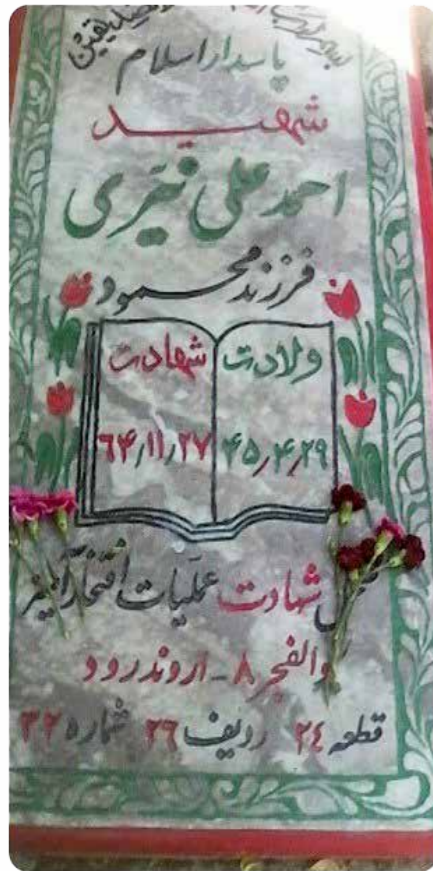 پاسدار اسلام
شهید
احمد علی نیری
فرزند محمود
ولادت شهادت
۴۵٫۴٫۲۹ ۶۴٫۱۱٫۲۷
شهادت عملیات افتخارآمیز
والفجر ۸ - اروندرود
قطعه ۲٤ ردیف ۲٦ شماره ۳۲